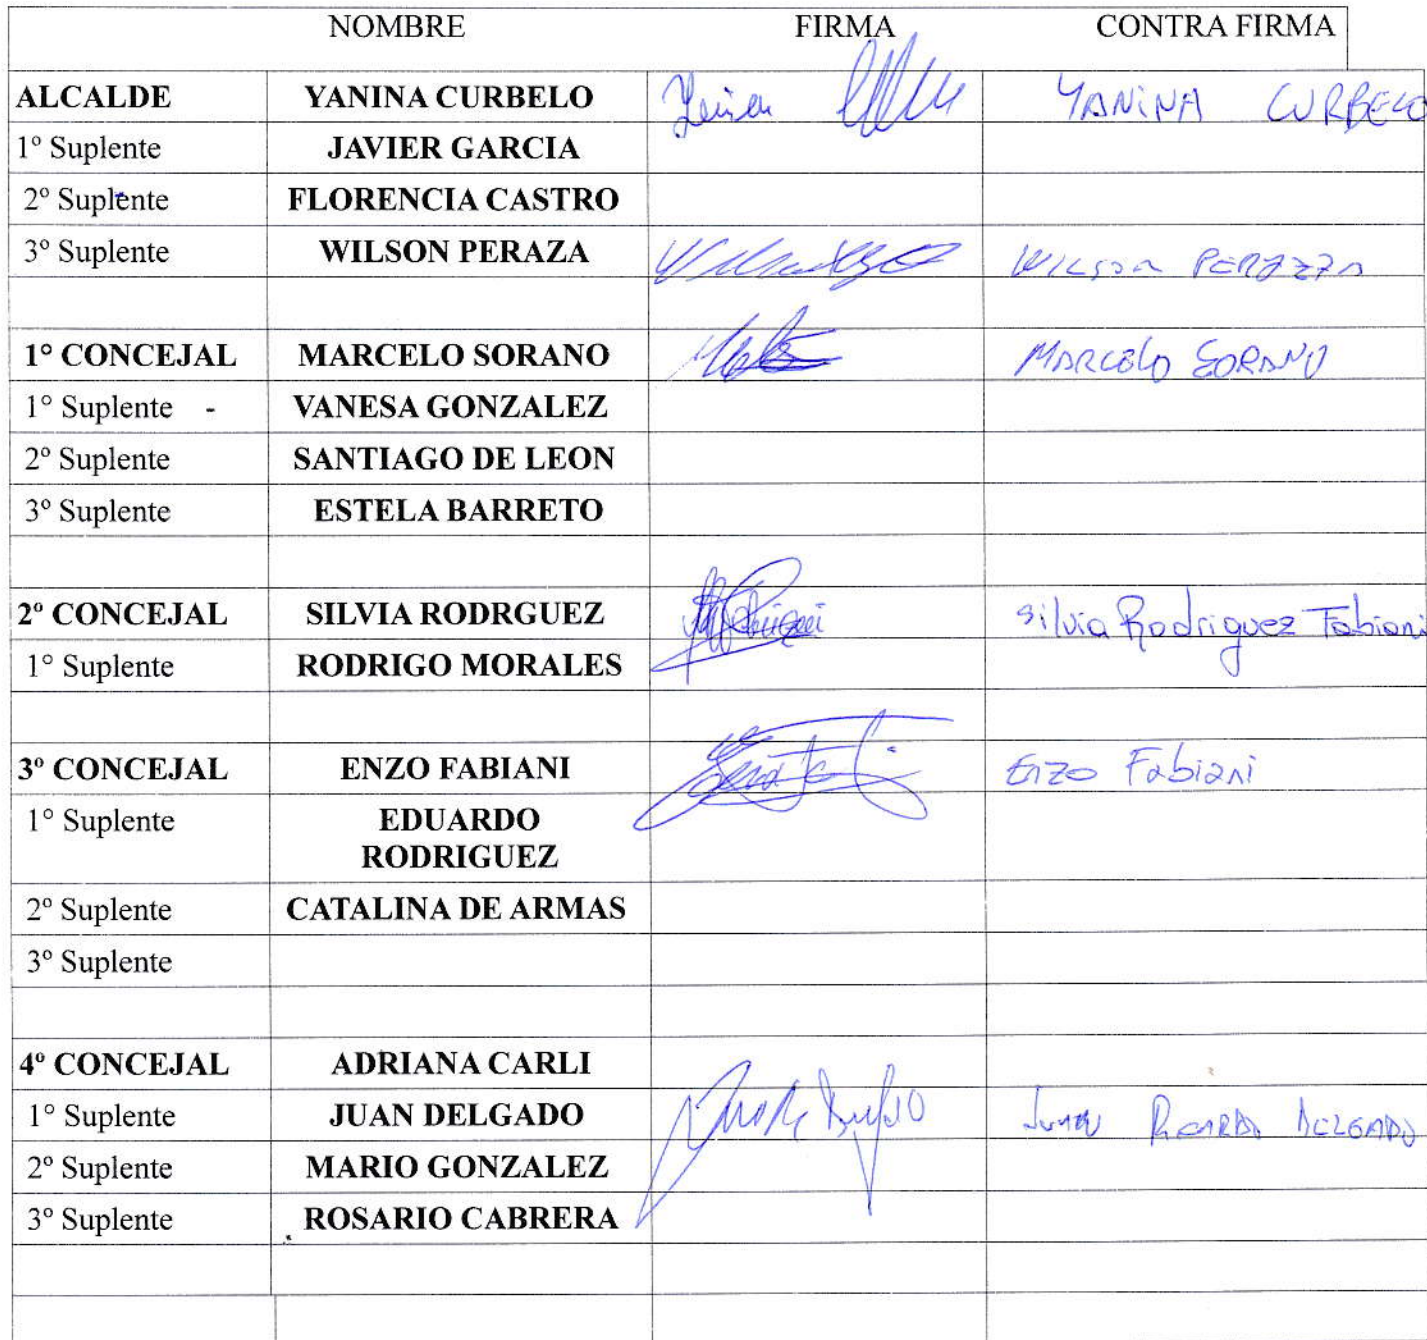 NOMBRE FIRMA CONTRA FIRMA
ALCALDE YANINA CURBELO YANINA CURBELO
1º Suplente JAVIER GARCIA
2º Suplente FLORENCIA CASTRO
3º Suplente WILSON PERAZA WILSON PERAZZA
1° CONCEJAL MARCELO SORANO MARCELO SORANO
1° Suplente - VANESA GONZALEZ
2º Suplente SANTIAGO DE LEON
3º Suplente ESTELA BARRETO
2º CONCEJAL SILVIA RODRGUEZ Silvia Rodriguez Fabiani
1° Suplente RODRIGO MORALES
3º CONCEJAL ENZO FABIANI Enzo Fabiani
1° Suplente EDUARDO
RODRIGUEZ
2º Suplente CATALINA DE ARMAS
3º Suplente
4º CONCEJAL ADRIANA CARLI
1° Suplente JUAN DELGADO JUAN RICARDO DELGADO
2º Suplente MARIO GONZALEZ
3º Suplente ROSARIO CABRERA